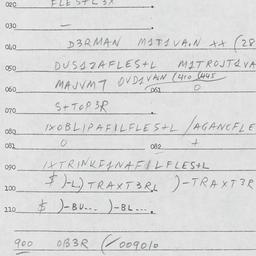 020 FLES+L3X .
030 —
040 D3RMAN M1T1VA,N xx (28
050 DUS12AFLES+L M1TROJT1VA
060 MAJVMT OVD1VAN (410 (445
061 0
070 S+TOP3R
080 IXOBLIPAFILFLES+L /AGANCFLE
081 0 082 +
090 IXTRINKF1NAFILFLES+L
100 $ )-L) TRAXT3R, )-TRAXT3R
110 $ )-BU... )-BL....
900 OB3R (/009010